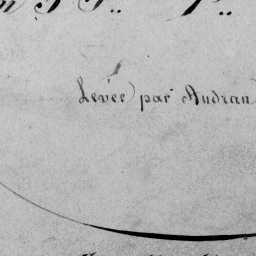 Levée par Audran